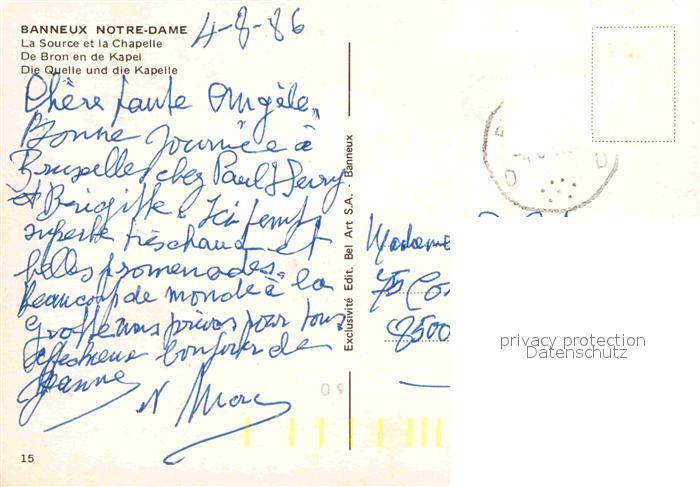 BANNEUX NOTRE-DAME
La Source et la Chapelle
De Bron en de Kapel
Die Quelle und die Kapelle
4-8-86
Chère tante Angèle,
Bonne journée à
Bruxelles chez Paul
et Brigitte. Ici temps
superbe très chaud et
belles promenades.
beaucoup de monde à la
grotte nous prions pour tous
bonjour de
Jeanne
Exclusivité Edit. Bel Art S.A. - Banneux
Madame
75
8500
privacy protection
Datenschutz
15